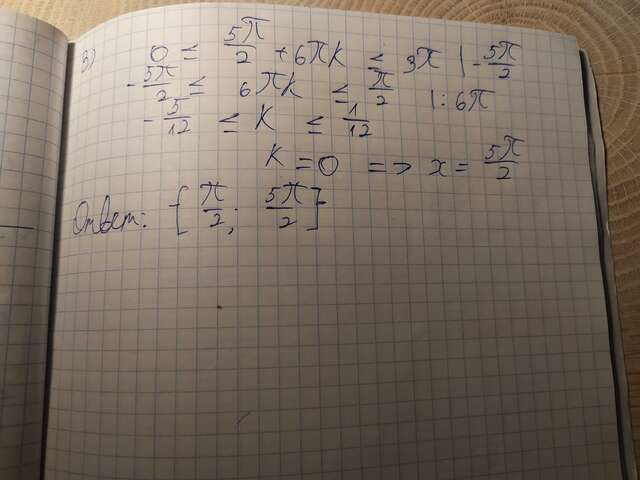 3) 0 ≤ 5π/2 + 6πk ≤ 3π | - 5π/2
- 5π/2 ≤ 6πk ≤ π/2 | : 6π
- 5/12 ≤ k ≤ 1/12
k = 0 => x = 5π/2
Ответ: [π/2; 5π/2]